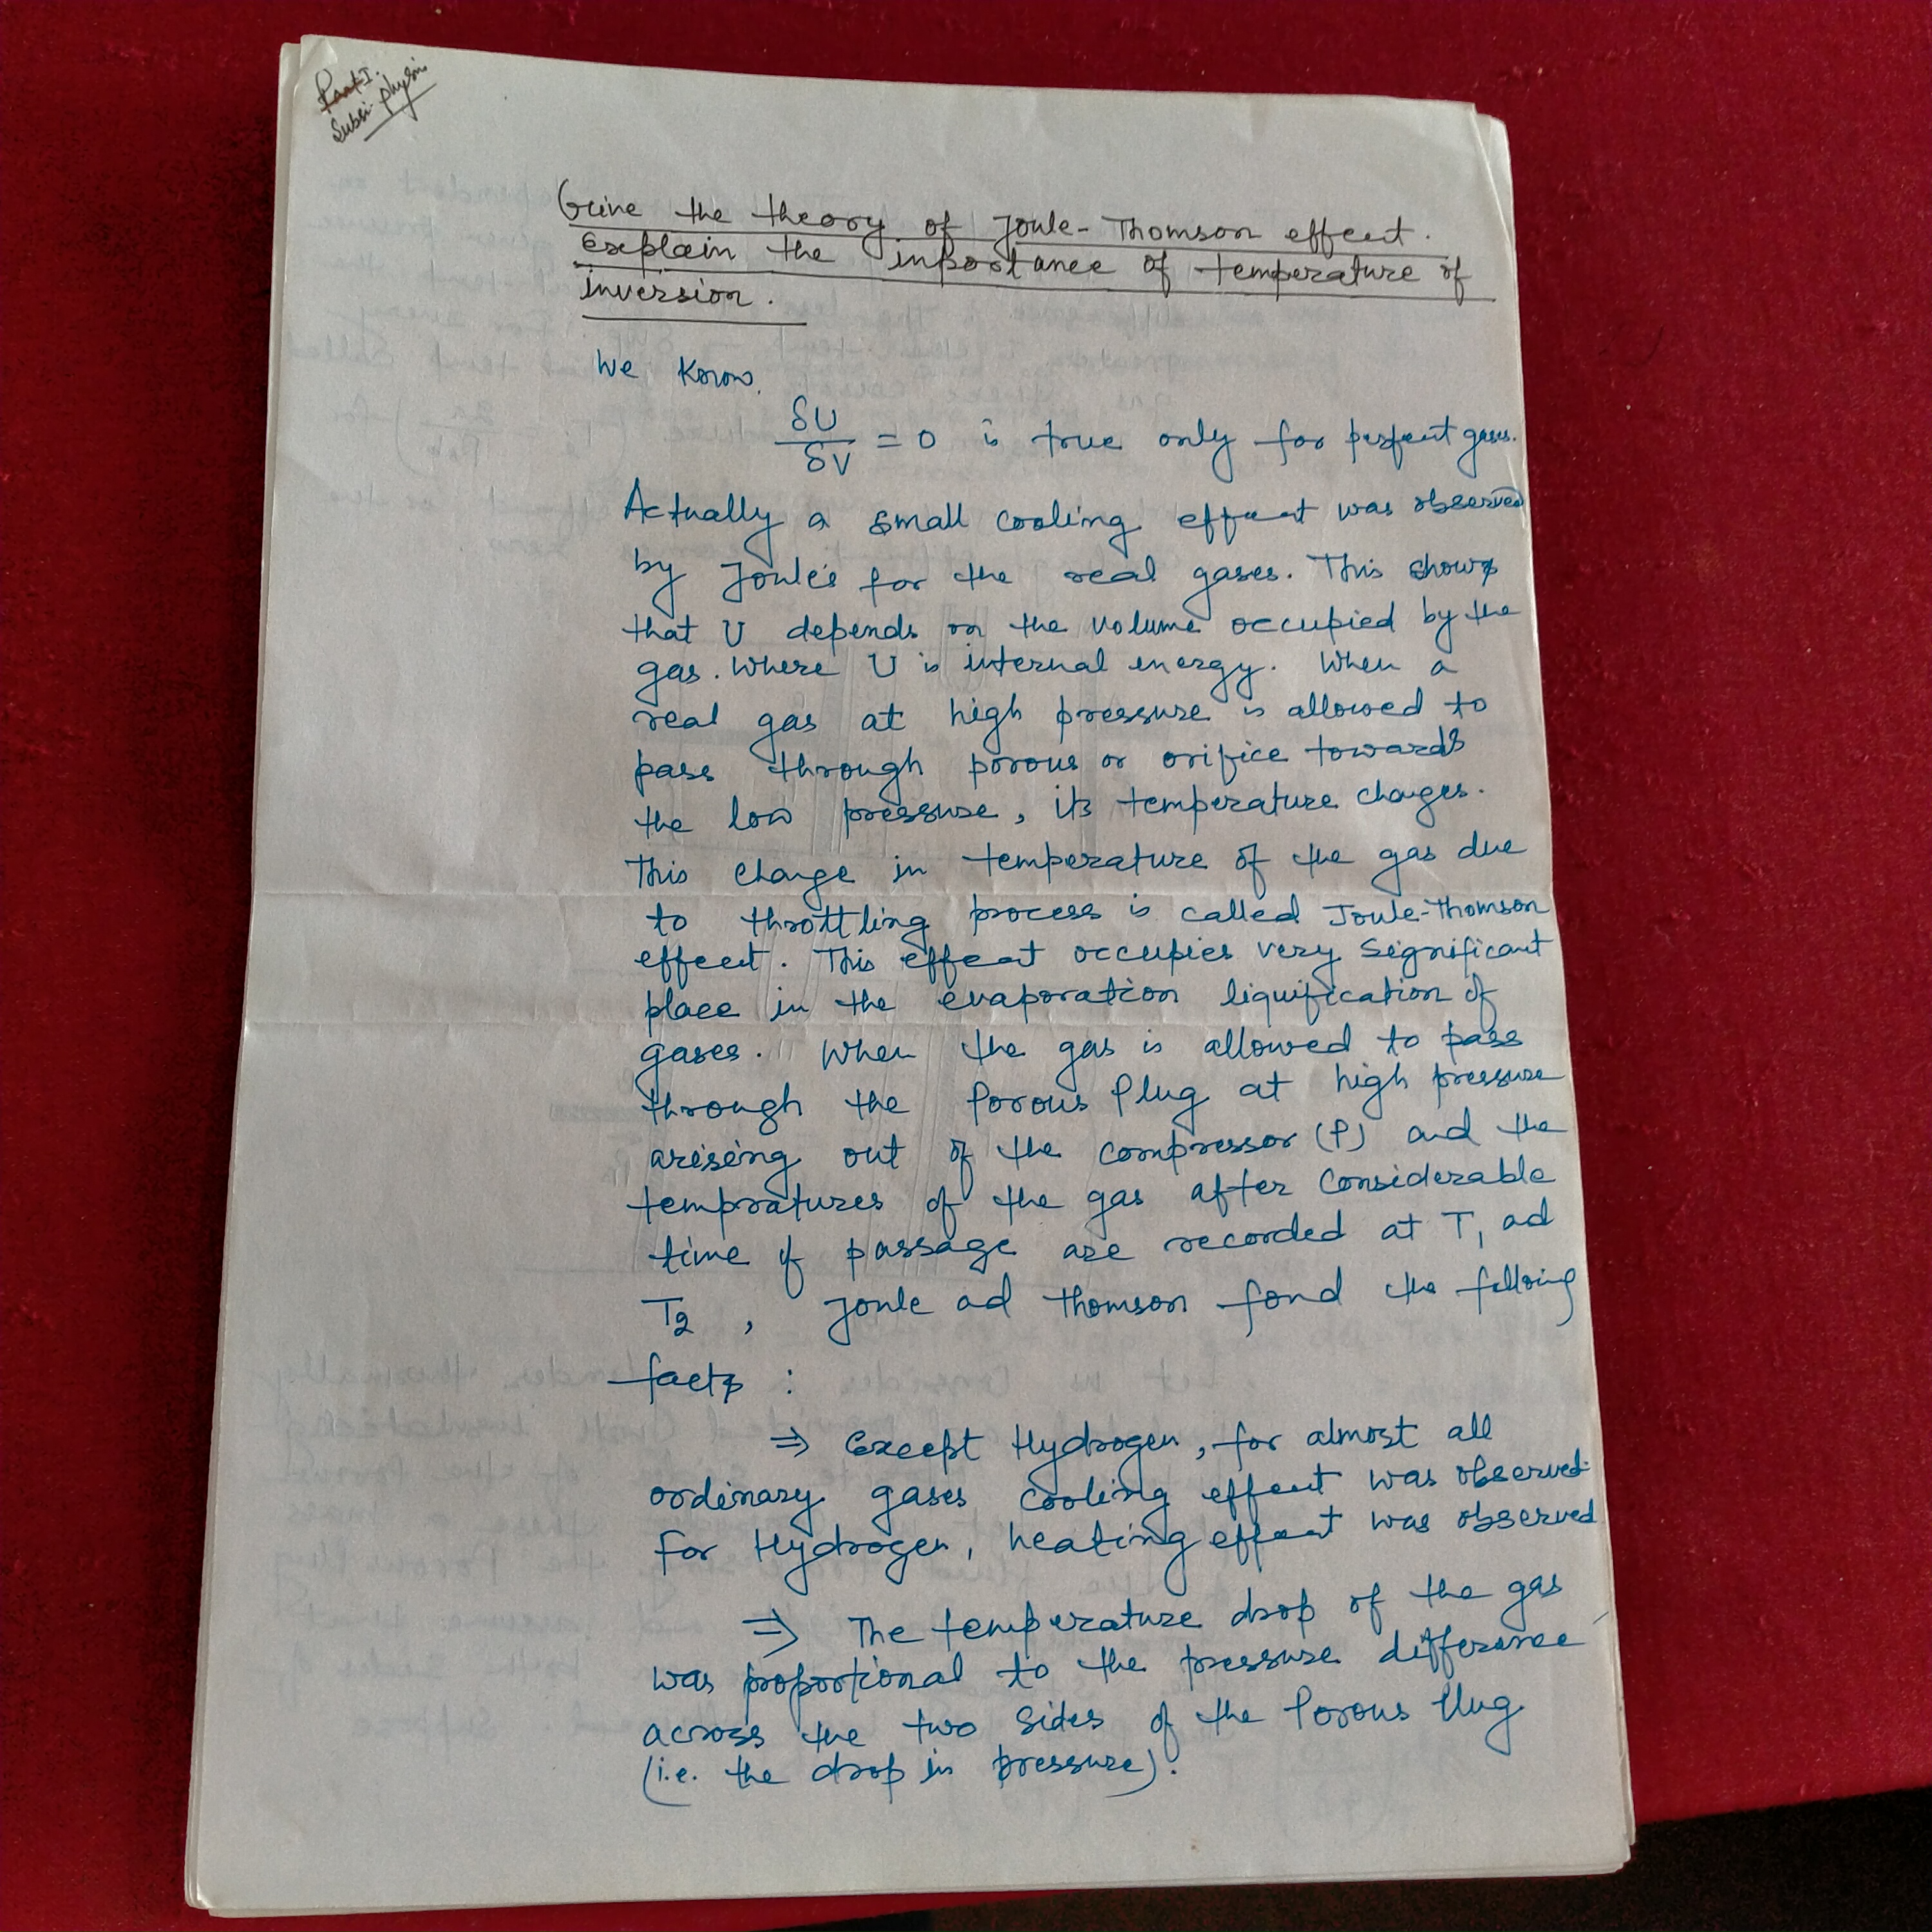 Part I.
Subsi. Physi
Give the theory of Joule-Thomson effect.
Explain the importance of temperature of
inversion.
We Know,
δU/δV = 0 is true only for perfect gases.
Actually a small cooling effect was observed
by Joule's for the real gases. This shows
that U depends on the volume occupied by the
gas. Where U is internal energy. When a
real gas at high pressure is allowed to
pass through porous or orifice towards
the low pressure, its temperature changes.
This change in temperature of the gas due
to throttling process is called Joule-Thomson
effect. This effect occupies very significant
place in the evaporation liquification of
gases. When the gas is allowed to pass
through the Porous Plug at high pressure
arising out of the compressor (P) and the
tempratures of the gas after considerable
time of passage are recorded at T₁ ad
T₂, Joule ad Thomson fond the folloing
facts :
⇒ Except Hydrogen, for almost all
ordinary gases cooling effect was observed.
For Hydrogen, heating effect was observed
⇒ The temperature drop of the gas
was proportional to the pressure difference
across the two sides of the Porous Plug
(i.e. the drop in pressure).